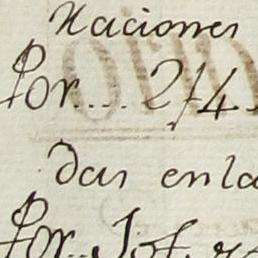 Naciones
Por.... 274
das en la
Por..